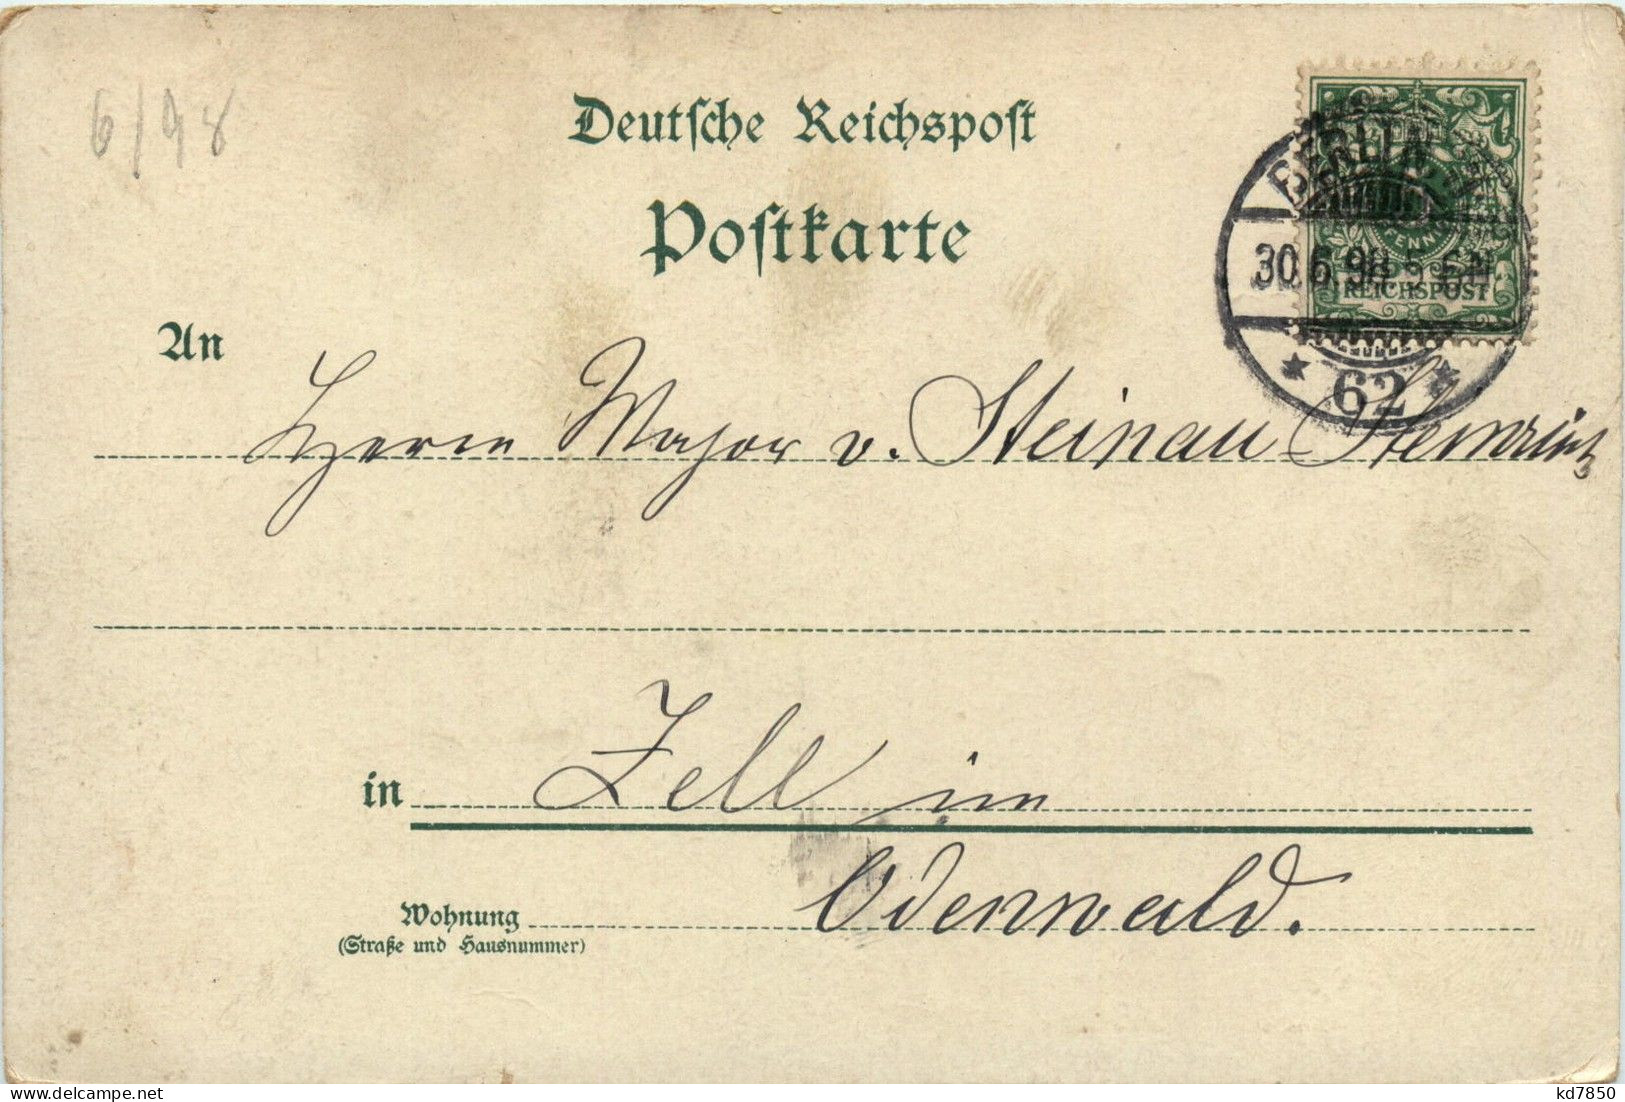 6/98
Deutsche Reichspost
Postkarte
BERLIN
PFENNIG
30.6.98.5-6N.
REICHSPOST
* 62 *
An
Herrn Major v. Steinau
in Zell im
Odenwald.
Wohnung
(Straße und Hausnummer)
www.delcampe.net
kd7850